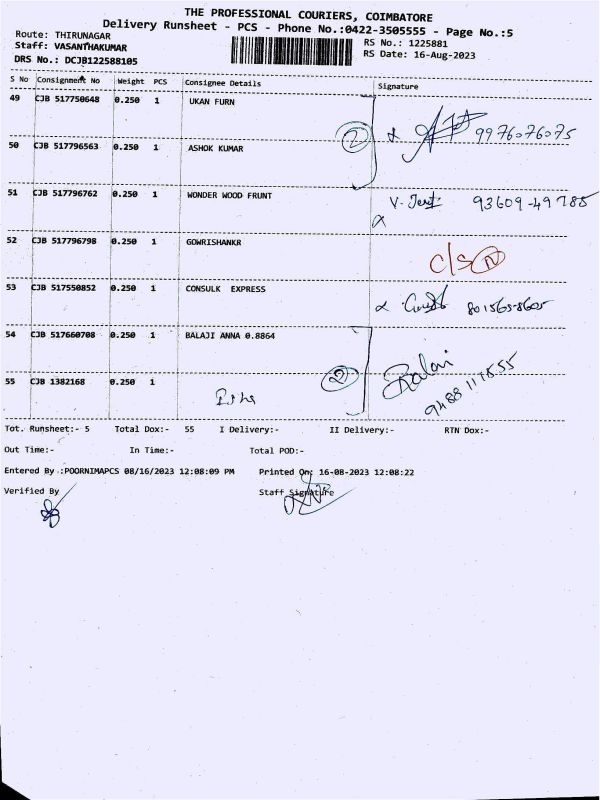 THE PROFESSIONAL COURIERS, COIMBATORE
Delivery Runsheet - PCS - Phone No.:0422-3505555 - Page No.:5
Route: THIRUNAGAR
Staff: VASANTHAKUMAR
DRS No.: DCJB122588105
RS No.: 1225881
RS Date: 16-Aug-2023
S No Consignment No Weight PCS Consignee Details Signature
49 CJB 517750648 0.250 1 UKAN FURN
2 9976076075
50 CJB 517796563 0.250 1 ASHOK KUMAR
51 CJB 517796762 0.250 1 WONDER WOOD FRUNT V. 93609-49785
52 CJB 517796798 0.250 1 GOWRISHANKR C/S N
53 CJB 517550852 0.250 1 CONSULK EXPRESS
54 CJB 517660708 0.250 1 BALAJI ANNA 0.8864
2 Balaji
55 CJB 1382168 0.250 1 9488111855
Tot. Runsheet:- 5 Total Dox:- 55 I Delivery:- II Delivery:- RTN Dox:-
Out Time:- In Time:- Total POD:-
Entered By :POORNIMAPCS 08/16/2023 12:08:09 PM Printed On: 16-08-2023 12:08:22
Verified By Staff Signature